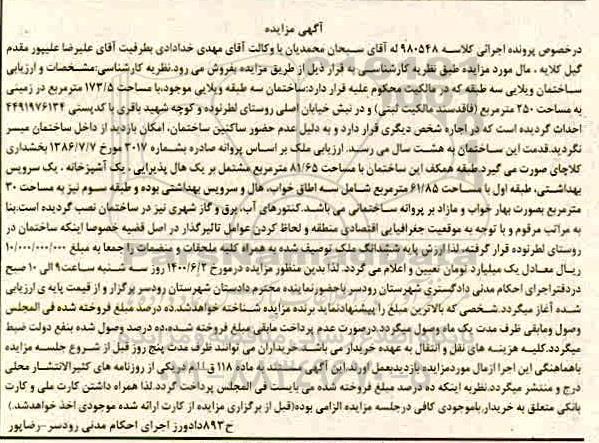 آگهی مزایده
درخصوص پرونده اجرائی کلاسه ۹۸۰۵۴۸ له آقای سبحان محمدیان با وکالت آقای مهدی خدادادی بطرفیت آقای علیرضا علیپور مقدم
گیل کلایه ، مال مورد مزایده طبق نظریه کارشناسی به قرار ذیل از طریق مزایده بفروش می رود.نظریه کارشناسی:مشخصات و ارزیابی
ساختمان ویلایی سه طبقه که در مالکیت محکوم علیه قرار دارد:ساختمان سه طبقه ویلایی موجود،با مساحت ۱۷۳/۵ مترمربع در زمینی
به مساحت ۲۵۰ مترمربع (فاقدسند مالکیت ثبتی) و در نبش خیابان اصلی روستای لطرنوده و کوچه شهید باقری با کدپستی ۴۴۹۱۹۷۶۱۳۴
احداث گردیده است که در اجاره شخص دیگری قرار دارد و به دلیل عدم حضور ساکنین ساختمان، امکان بازدید از داخل ساختمان میسر
نگردید.قدمت این ساختمان به هشت سال می رسد. ارزیابی ملک بر اساس پروانه صادره بشماره ۳۰۱۷ مورخ ۱۳۸۶/۷/۷ بخشداری
کلاچای صورت می گیرد.طبقه همکف این ساختمان با مساحت ۸۱/۶۵ مترمربع مشتمل بر یک هال پذیرایی ، یک آشپزخانه ، یک سرویس
بهداشتی، طبقه اول با مساحت ۶۱/۸۵ مترمربع شامل سه اطاق خواب، هال و سرویس بهداشتی بوده و طبقه سوم نیز به مساحت ۳۰
مترمربع بصورت بهار خواب و مازاد بر پروانه ساختمانی می باشد.کنتورهای آب، برق و گاز شهری نیز در ساختمان نصب گردیده است.بنا
به مراتب مرقوم و با توجه به موقعیت جغرافیایی اقتصادی منطقه و لحاظ کردن عوامل تاثیرگذار در اصل قضیه خصوصا اینکه ساختمان در
روستای لطرنوده قرار گرفته، لذا ارزش پایه ششدانگ ملک توصیف شده به همراه کلیه ملحقات و منضمات را جمعا به مبلغ ۱۰/۰۰۰/۰۰۰/۰۰۰
ریال معادل یک میلیارد تومان تعیین و اعلام می گردد. لذا بدین منظور مزایده درمورخ ۱۴۰۰/۶/۲ روز سه شنبه ساعت۹ الی ۱۰ صبح
دردفتراجرای احکام مدنی دادگستری شهرستان رودسر باحضورنماینده محترم دادستان شهرستان رودسر برگزار و از قیمت پایه ی ارزیابی
شده آغاز میگردد.شخصی که بالاترین مبلغ را پیشنهادنماید برنده مزایده شناخته خواهدشد.ده درصد مبلغ فروخته شده فی المجلس
وصول ومابقی ظرف مدت یک ماه وصول میگردد.درصورت عدم پرداخت مابقی مبلغ فروخته شده،ده درصد وصول شده بنفع دولت ضبط
میگردد.کلیه هزینه های نقل و انتقال به عهده خریدار می باشد.خریداران می توانند ظرف مدت پنج روز قبل از شروع جلسه مزایده
باهماهنگی این اجرا ازمال موردمزایده بازدیدبعمل آورند.این آگهی مستند به ماده ۱۱۸ ق.ا.ا.م دریکی از روزنامه های کثیرالانتشار محلی
درج و منتشر میگردد.نظربه اینکه ده درصد مبلغ فروخته شده می بایست فی المجلس پرداخت گردد.لذا همراه داشتن کارت ملی و کارت
بانکی متعلق به خریدار,باموجودی کافی درجلسه مزایده الزامی بوده(قبل از برگزاری مزایده از کارت ارائه شده موجودی اخذ خواهدشد.)
ح۸۹۳دادورز اجرای احکام مدنی رودسر-رضاپور